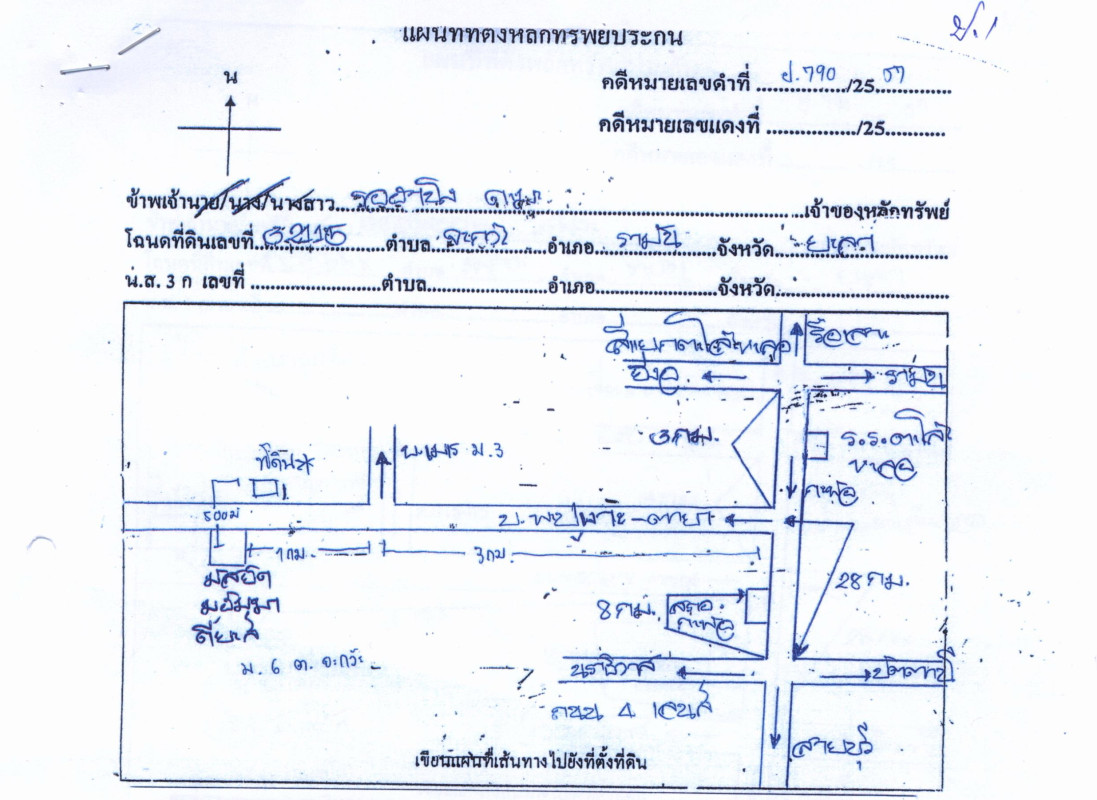 ป.1
แผนที่ที่ตั้งหลักทรัพย์ประกัน
น
คดีหมายเลขดำที่ ป.790/25 57
คดีหมายเลขแดงที่ ............../25...........
ข้าพเจ้านาย/นาง/นางสาว เจ้าของหลักทรัพย์
โฉนดที่ดินเลขที่ 32115 ตำบล จะกว๊ะ อำเภอ รามัน จังหวัด ยะลา
น.ส. 3 ก เลขที่ ......................ตำบล......................อำเภอ......................จังหวัด..............................
สี่แยกตะโล๊ะหะลอ
รือเสาะ
ยะลา
รามัน
3 กม.
ร.ร.ตะโล๊ะ
หะลอ
กะพ้อ
ที่ดิน
ม.3
500 ม
1 กม.
3 กม
28 กม.
มัสยิด
8 กม.
สภอ.
กะพ้อ
ม. 6 ต. จะกว๊ะ
นราธิวาส
ปัตตานี
ถนน 4 เลนส์
สายบุรี
เขียนแผนที่เส้นทางไปยังที่ตั้งที่ดิน